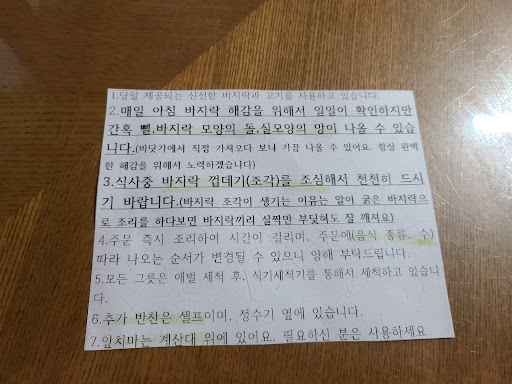 1.당일 제공되는 신선한 바지락과 고기를 사용하고 있습니다.
2.매일 아침 바지락 해감을 위해서 일일이 확인하지만
간혹 뻘,바지락 모양의 돌,실모양의 망이 나올 수 있습
니다.(바닷가에서 직접 가져오다 보니 가끔 나올 수 있어요. 항상 완벽
한 해감을 위해서 노력하겠습니다)
3.식사중 바지락 껍데기(조각)를 조심해서 천천히 드시
기 바랍니다.(바지락 조각이 생기는 이유는 알이 굵은 바지락으
로 조리를 하다보면 바지락끼리 살짝만 부딪혀도 잘 깨져요)
4.주문 즉시 조리하여 시간이 걸리며, 주문에(음식 종류, 수)
따라 나오는 순서가 변경될 수 있으니 양해 부탁드립니다.
5.모든 그릇은 애벌 세척 후, 식기세척기를 통해서 세척하고 있습니
다.
6.추가 반찬은 셀프이며, 정수기 옆에 있습니다.
7.앞치마는 계산대 위에 있어요. 필요하신 분은 사용하세요